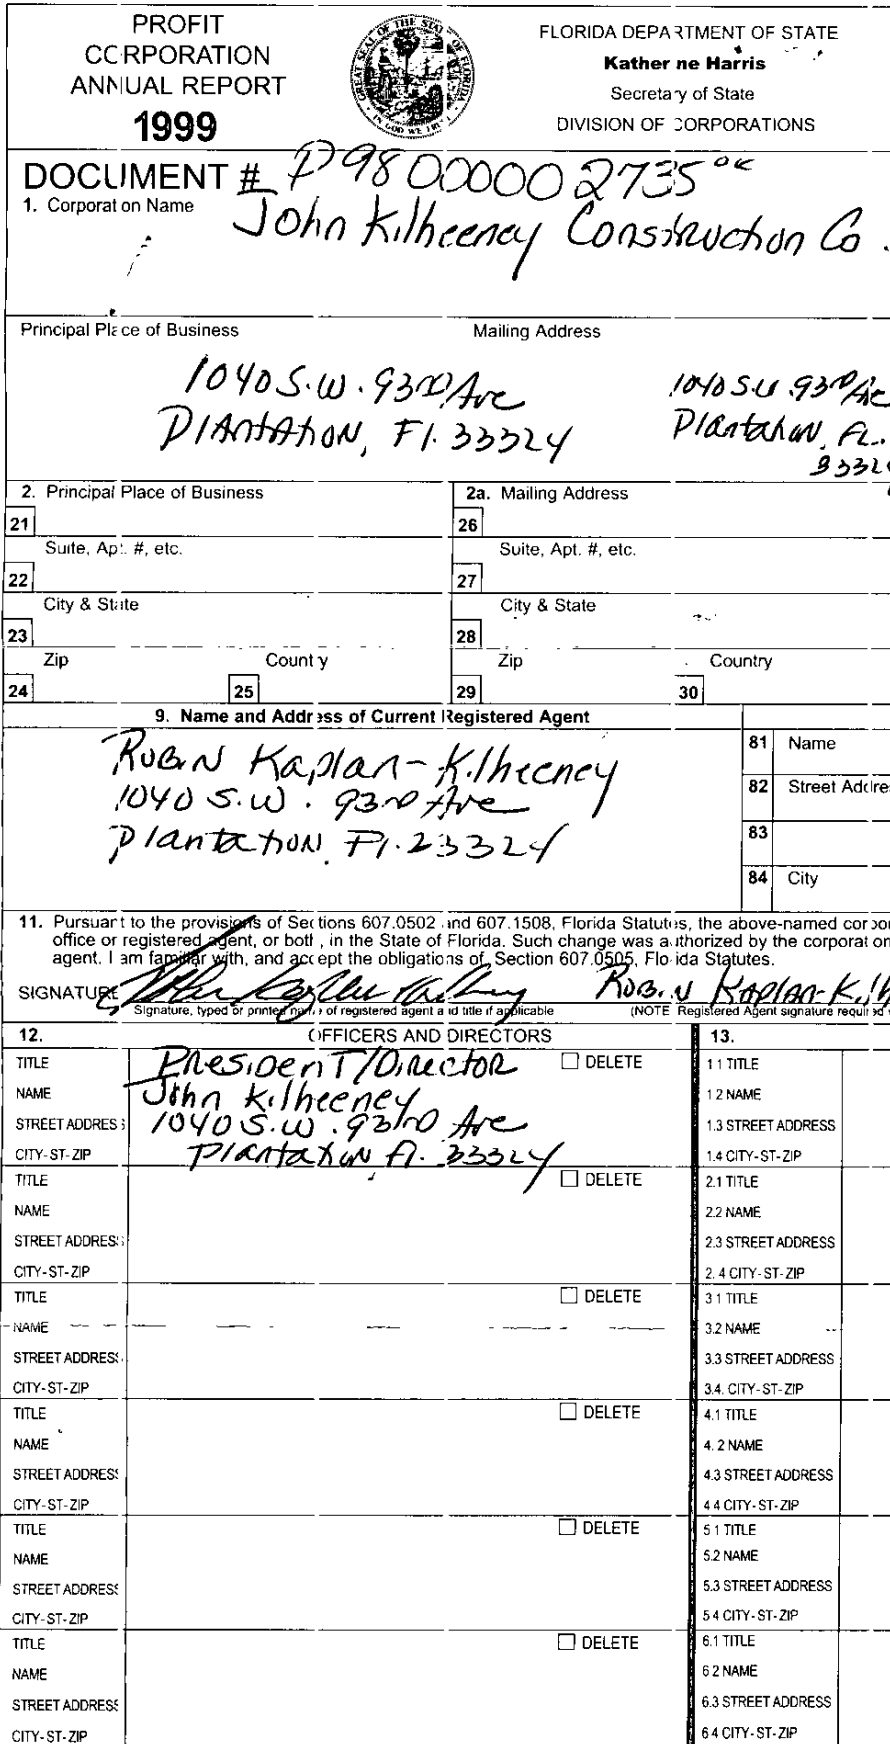 PROFIT
CORPORATION
ANNUAL REPORT
1999
GREAT SEAL OF THE STATE OF FLORIDA
IN GOD WE TRUST
FLORIDA DEPARTMENT OF STATE
Katherine Harris
Secretary of State
DIVISION OF CORPORATIONS
DOCUMENT # P98000002735 ok
1. Corporation Name
John Kilheeney Construction Co.
Principal Place of Business
Mailing Address
1040 S.W. 93RD Ave
Plantation, Fl. 33324
1040 S.W. 93RD Ave
Plantation, FL.
3332
2. Principal Place of Business
2a. Mailing Address
21
26
Suite, Apt. #, etc.
Suite, Apt. #, etc.
22
27
City & State
City & State
23
28
Zip
Country
Zip
Country
24
25
29
30
9. Name and Address of Current Registered Agent
Robin Kaplan-Kilheeney
1040 S.W. 93RD Ave
Plantation, Fl. 33324
81 Name
82 Street Addre
83
84 City
11. Pursuant to the provisions of Sections 607.0502 and 607.1508, Florida Statutes, the above-named corpor
office or registered agent, or both, in the State of Florida. Such change was authorized by the corporation
agent. I am familiar with, and accept the obligations of, Section 607.0505, Florida Statutes.
SIGNATURE Robin Kaplan Kilheeney Robin Kaplan-Kilh
Signature, typed or printed name of registered agent and title if applicable
(NOTE Registered Agent signature required
12. OFFICERS AND DIRECTORS
13.
TITLE President/Director DELETE
NAME John Kilheeney
STREET ADDRESS 1040 S.W. 93RD Ave
CITY-ST-ZIP Plantation Fl. 33324
1 1 TITLE
1 2 NAME
1.3 STREET ADDRESS
1.4 CITY-ST-ZIP
TITLE DELETE
NAME
STREET ADDRESS
CITY-ST-ZIP
2.1 TITLE
2.2 NAME
2.3 STREET ADDRESS
2. 4 CITY-ST-ZIP
TITLE DELETE
NAME
STREET ADDRESS
CITY-ST-ZIP
3 1 TITLE
3.2 NAME
3.3 STREET ADDRESS
3.4. CITY-ST-ZIP
TITLE DELETE
NAME
STREET ADDRESS
CITY-ST-ZIP
4.1 TITLE
4. 2 NAME
4.3 STREET ADDRESS
4 4 CITY-ST-ZIP
TITLE DELETE
NAME
STREET ADDRESS
CITY-ST-ZIP
5 1 TITLE
5.2 NAME
5.3 STREET ADDRESS
5 4 CITY-ST-ZIP
TITLE DELETE
NAME
STREET ADDRESS
CITY-ST-ZIP
6.1 TITLE
6 2 NAME
6.3 STREET ADDRESS
6 4 CITY-ST-ZIP